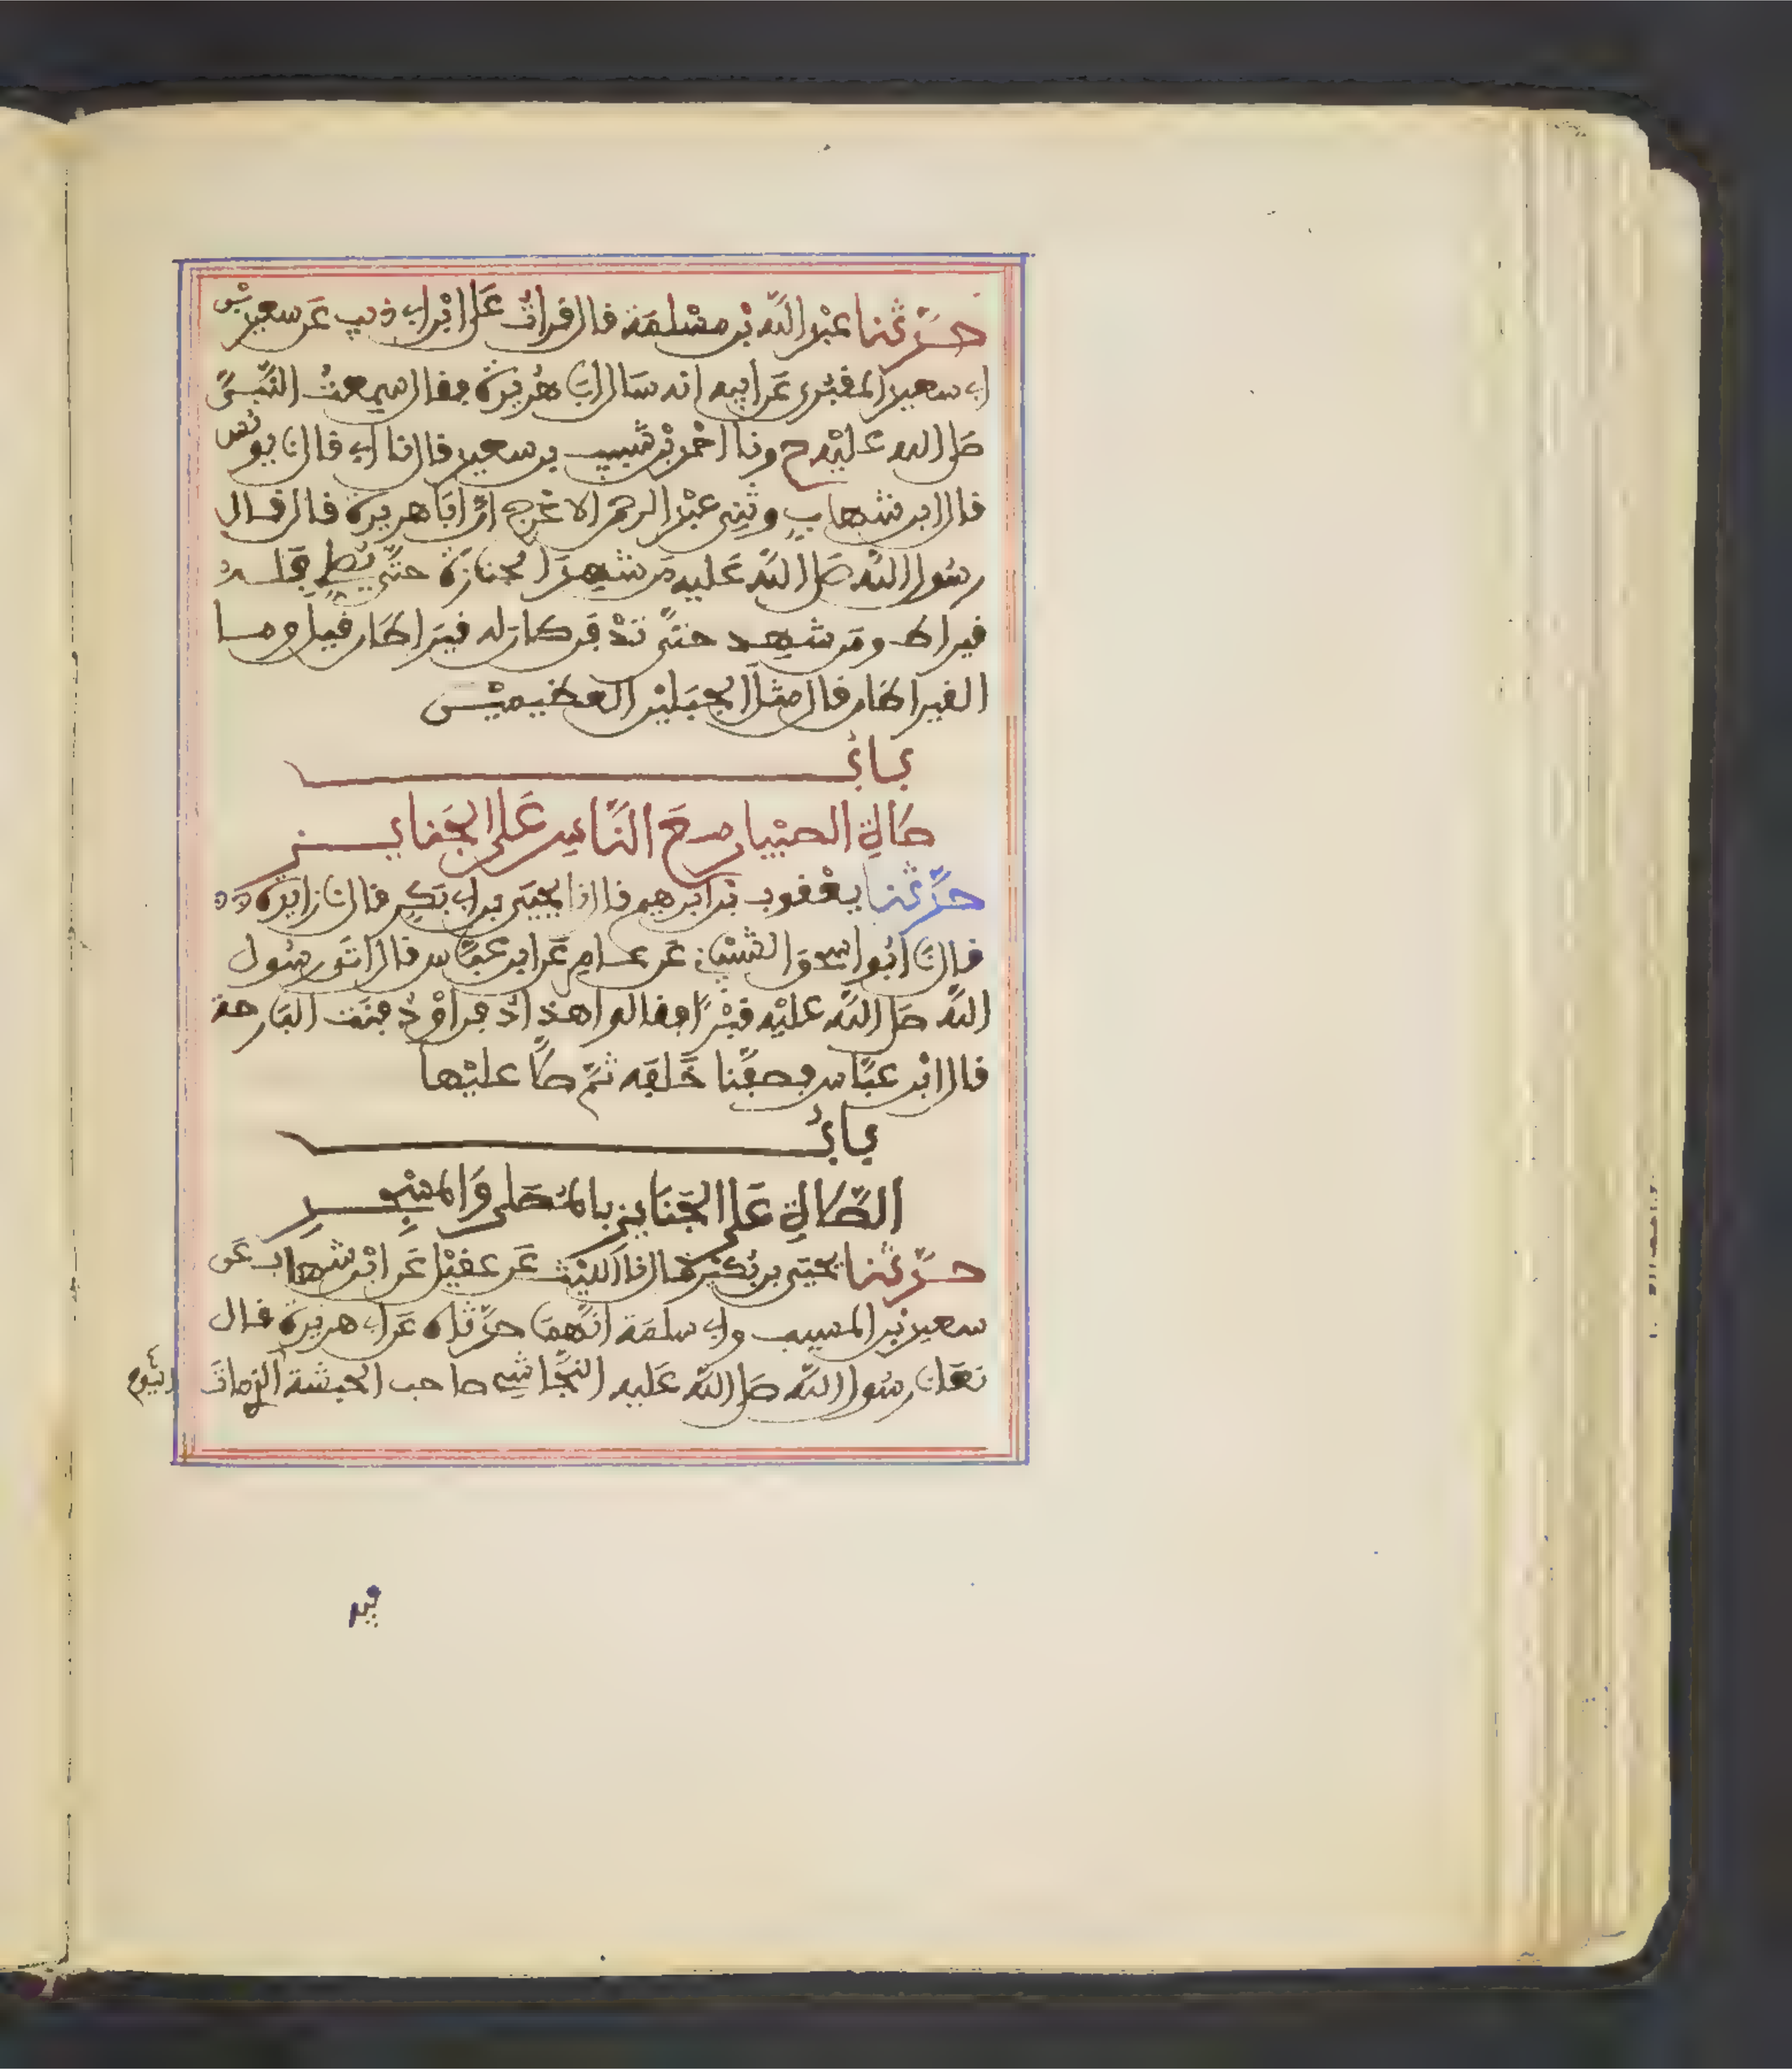 حدثنا عبد الله بن مسلمة قال قرأت على ابن ابي ذيب عن سعيد بن
ابي سعيد المقبري عن ابيه انه سال ابا هريرة فقال سمعت النبي
صلى الله عليه ح ونا احمد بن شبيب بن سعيد قال نا ابي قال نا يونس
قال ابن شهاب وثني عبد الرحمن الاعرج ان ابا هريرة قال قال
رسول الله صلى الله عليه من شهد الجنازة حتى يصلي فله
قيراط ومن شهد حتى تدفن كان له قيراطان قيل وما
القيراطان قال مثل الجبلين العظيمين
باب
صلاة الصبيان مع الناس على الجنايز
حدثنا يعقوب بن ابرهيم قال نا يحيى بن ابي بكير قال نا زايدة
قال نا ابو اسحق الشيباني عن عامر عن ابن عباس قال اتى رسول
الله صلى الله عليه قبرا فقالوا هذا دفن او دفنت البارحة
قال ابن عباس فصفنا خلفه ثم صلى عليها
باب
الصلاة على الجنايز بالمصلى والمسجد
حدثنا يحيى بن بكير قال نا الليث عن عقيل عن ابن شهاب عن
سعيد بن المسيب وابي سلمة انهما حدثاه عن ابي هريرة قال
نعى لنا رسول الله صلى الله عليه النجاشي صاحب الحبشة اليوم الذي مات
فيه